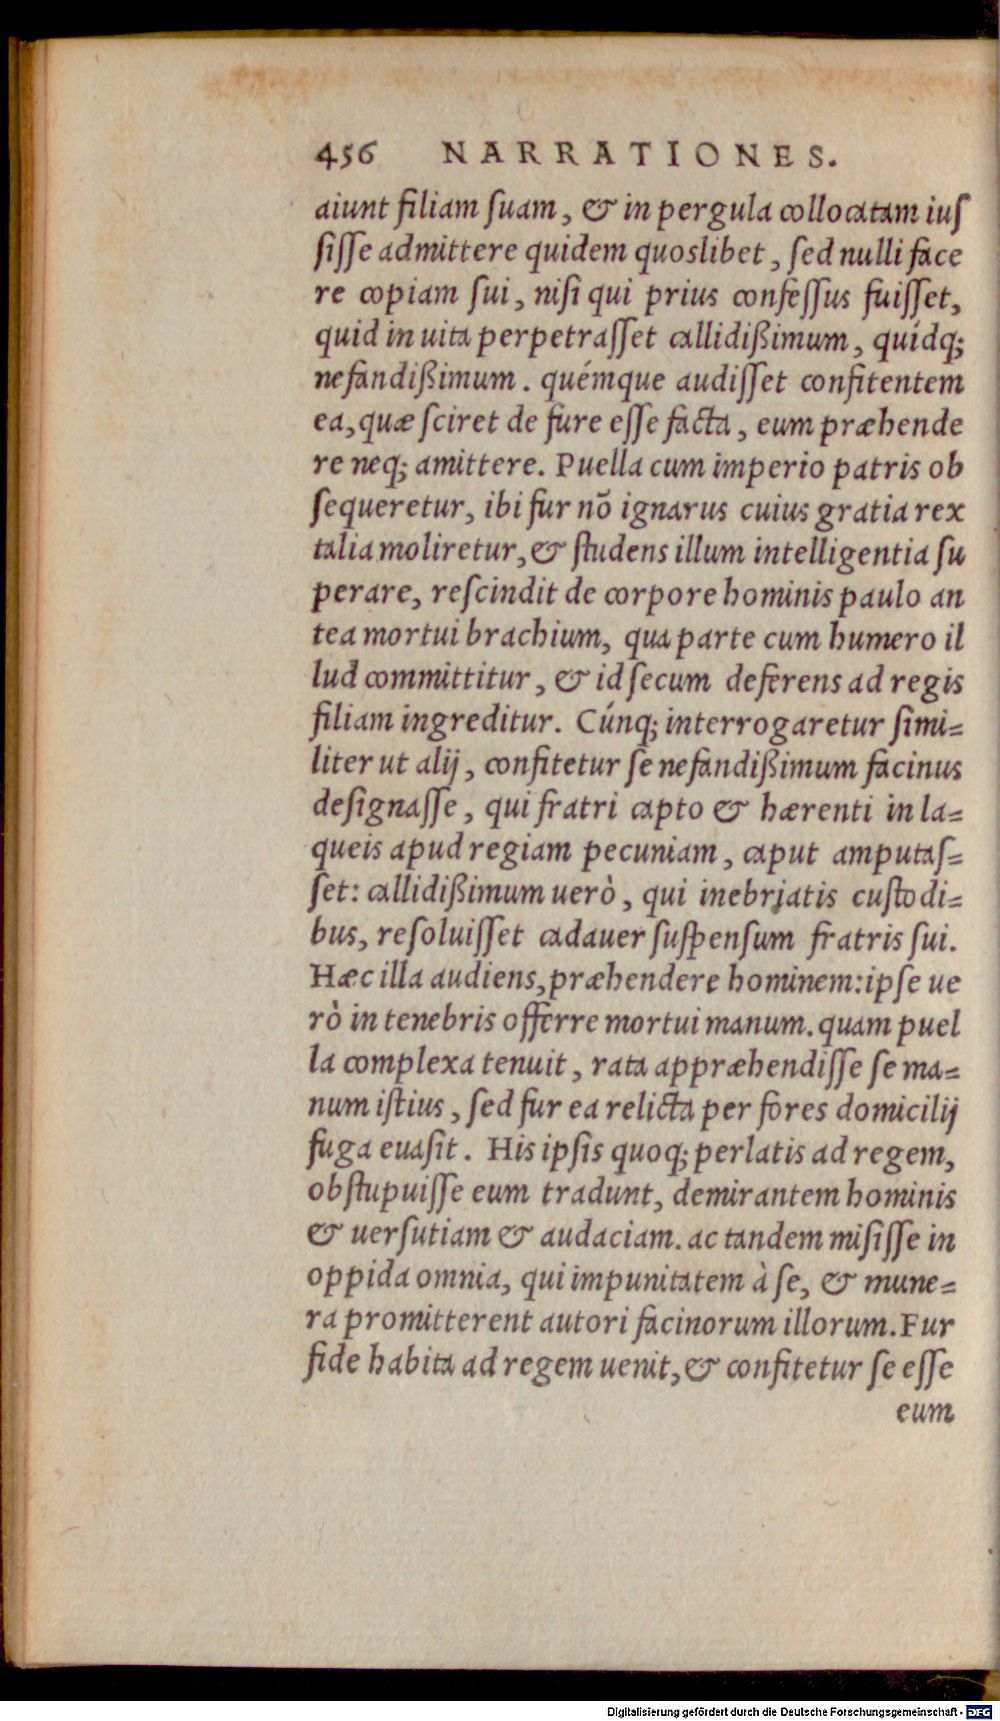 456 NARRATIONES.
aiunt filiam ſuam, & in pergula collocatam iuſ
ſiſſe admittere quidem quoslibet, ſed nulli face
re copiam ſui, niſi qui prius confeſſus fuiſſet,
quid in uita perpetraſſet callidißimum, quídq;
nefandißimum. quémque audiſſet confitentem
ea, quæ ſciret de fure eſſe facta, eum præhende
re neq; amittere. Puella cum imperio patris ob
ſequeretur, ibi fur nõ ignarus cuius gratia rex
talia moliretur, & ſtudens illum intelligentia ſu
perare, reſcindit de corpore hominis paulo an
tea mortui brachium, qua parte cum humero il
lud committitur, & id ſecum deferens ad regis
filiam ingreditur. Cúnq; interrogaretur ſimi=
liter ut alij, confitetur ſe nefandißimum facinus
deſignaſſe, qui fratri capto & hærenti in la=
queis apud regiam pecuniam, caput amputaſ=
ſet: callidißimum uerò, qui inebriatis cuſtodi=
bus, reſoluiſſet cadauer ſuſpenſum fratris ſui.
Hæc illa audiens, præhendere hominem: ipſe ue
rò in tenebris offerre mortui manum. quam puel
la complexa tenuit, rata appræhendiſſe ſe ma=
num iſtius, ſed fur ea relicta per fores domicilij
fuga euaſit. His ipſis quoq; perlatis ad regem,
obſtupuiſſe eum tradunt, demirantem hominis
& uerſutiam & audaciam. ac tandem miſiſſe in
oppida omnia, qui impunitatem à ſe, & mune=
ra promitterent autori facinorum illorum. Fur
fide habita ad regem uenit, & confitetur ſe eſſe
eum
Digitalisierung gefördert durch die Deutsche Forschungsgemeinschaft - DFG